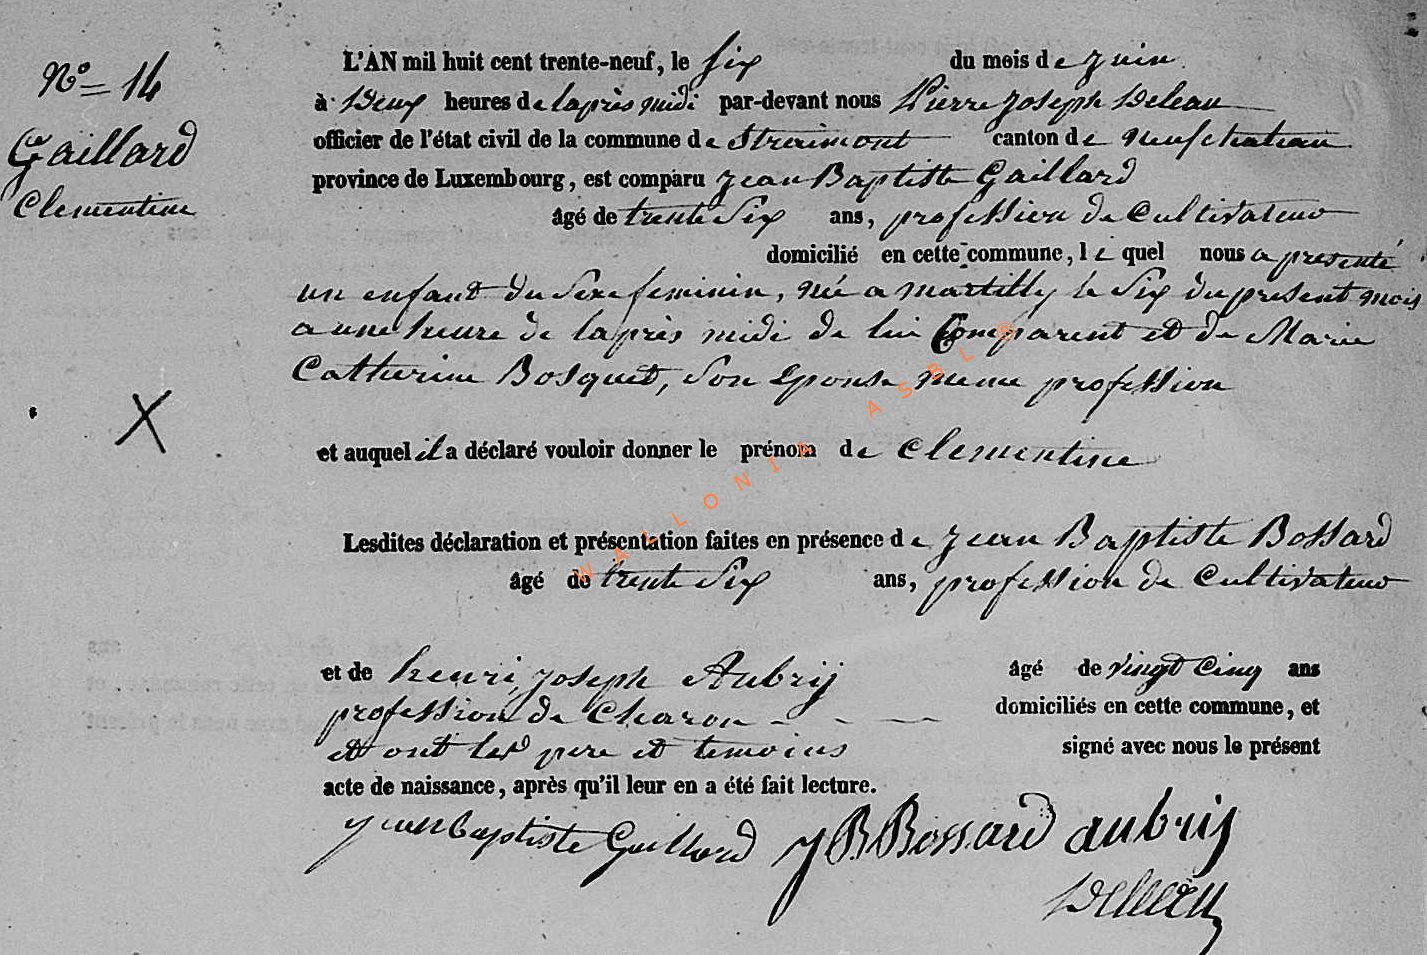 N° = 14
Gaillard
Clementine
L'AN mil huit cent trente-neuf, le six du mois de juin
à Deux heures de laprès midi par-devant nous Pierre Joseph Deleau
officier de l'état civil de la commune de Straimont canton de neufchateau
province de Luxembourg, est comparu jean Baptiste Gaillard
âgé de trente six ans, profession de Cultivateur
domicilié en cette commune, le quel nous a presenté
un enfant du sexe feminin, née a martilly le six du present mois
a une heure de laprès midi de lui Comparent et de Marie
Catherine Bosquet, son epouse meme profession
et auquel il a déclaré vouloir donner le prénom de Clementine
Lesdites déclaration et présentation faites en présence de jean Baptiste Bossard
âgé de trente six ans, profession de Cultivateur
et de henri joseph Aubrij âgé de vingt Cinq ans
profession de Charon - - — domiciliés en cette commune, et
et ont les pere et temoins signé avec nous le présent
acte de naissance, après qu'il leur en a été fait lecture.
jean baptiste Gaillard J B Bossard aubrij
Deleau
WALLONIA ASBL ©
X